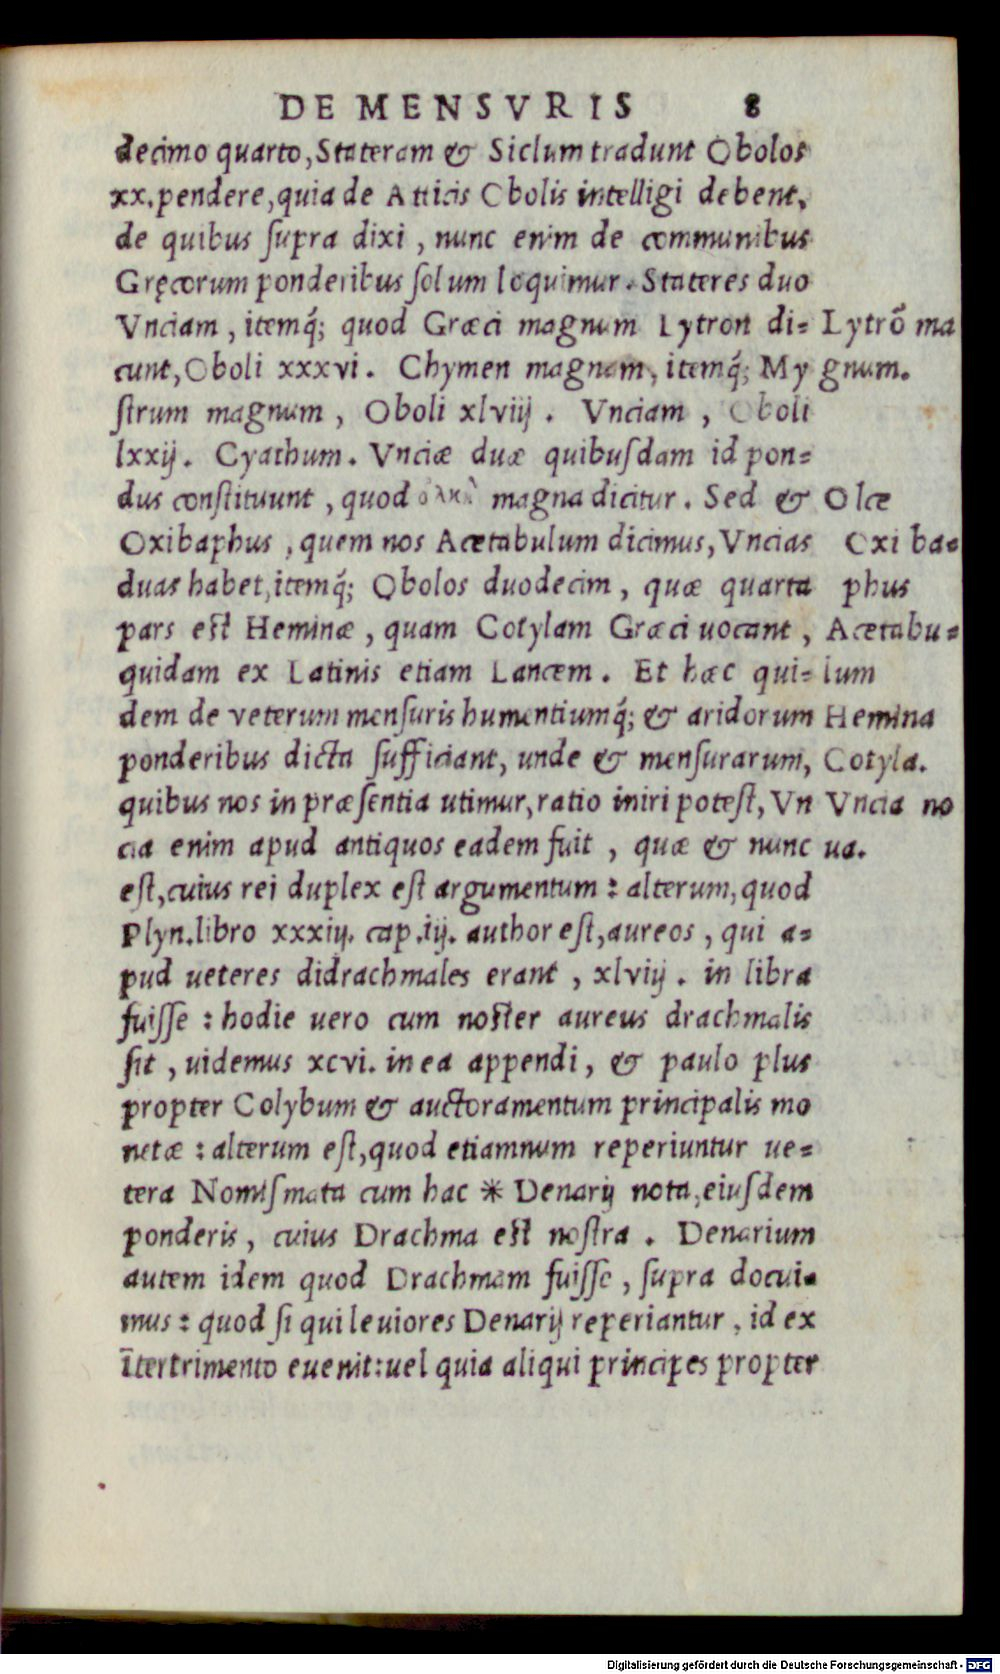 DE MENSVRIS 8
decimo quarto, Stateram & Siclum tradunt Obolos
xx. pendere, quia de Atticis Obolis intelligi debent,
de quibus ſupra dixi, nunc enim de communibus
Gręcorum ponderibus ſolum loquimur. Stateres duo
Vnciam, itemq́; quod Græci magnum Lytron di-
cunt, Oboli xxxvi. Chymen magnam, itemq́; My
ſtrum magnum, Oboli xlviij. Vnciam, Oboli
lxxij. Cyathum. Vnciæ duæ quibuſdam id pon-
dus conſtituunt, quod ὁλκὴ magna dicitur. Sed &
Oxibaphus, quem nos Acetabulum dicimus, Vncias
duas habet, itemq́; Obolos duodecim, quæ quarta
pars eſt Heminæ, quam Cotylam Græci uocant,
quidam ex Latinis etiam Lancem. Et hæc qui-
dem de veterum menſuris humentiumq́; & aridorum
ponderibus dicta ſufficiant, unde & menſurarum,
quibus nos in præſentia utimur, ratio iniri poteſt, Vn
cia enim apud antiquos eadem fuit, quæ & nunc
eſt, cuius rei duplex eſt argumentum: alterum, quod
Plyn. libro xxxiij. cap. iij. author eſt, aureos, qui a-
pud ueteres didrachmales erant, xlviij. in libra
fuiſſe: hodie uero cum noſter aureus drachmalis
ſit, uidemus xcvi. in ea appendi, & paulo plus
propter Colybum & auctoramentum principalis mo
netæ: alterum eſt, quod etiamnum reperiuntur ue-
tera Nomiſmata cum hac ✳ Denarij nota, eiuſdem
ponderis, cuius Drachma eſt noſtra. Denarium
autem idem quod Drachmam fuiſſe, ſupra docui-
mus: quod ſi qui leuiores Denarij reperiantur, id ex
ītertrimento euenit: uel quia aliqui principes propter
Lytrō ma
gnum.
Olcæ
Oxi ba-
phus
Acetabu-
lum
Hemina
Cotyla.
Vncia no
ua.
Digitalisierung gefördert durch die Deutsche Forschungsgemeinschaft - DFG